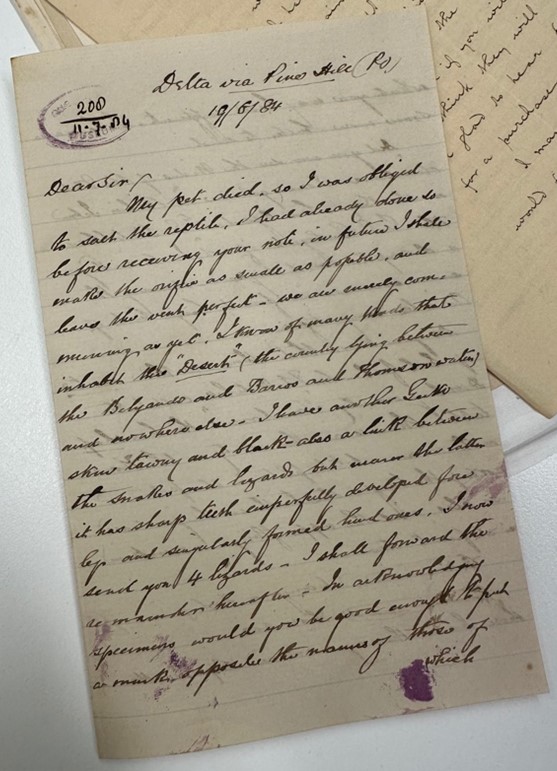 Delta via Pine Hill (PO)
19/6/84
200
11-7-84
Dear Sir/
My pet died, so I was obliged
to salt the reptile, I had already done so
before receiving your note, in future I shall
make the orifice as small as possible, and
leave the vent perfect - we are merely com-
mencing as yet. I know of many birds that
inhabit the "Desert" (the country lying between
the Belyando and Barcoo and Thomson waters)
and nowhere else - I have another
skin tawny and black also a link between
the snakes and lizards but nearer the latter
it has sharp teeth imperfectly developed fore
legs and singularly formed hind ones. I now
send you 4 lizards - I shall forward the
remainder hereafter - In acknowledging
specimens would you be good enough to put
a mark opposite the names of those of
which
the
if you will
think they will
glad to hear
for a purchase
I
would